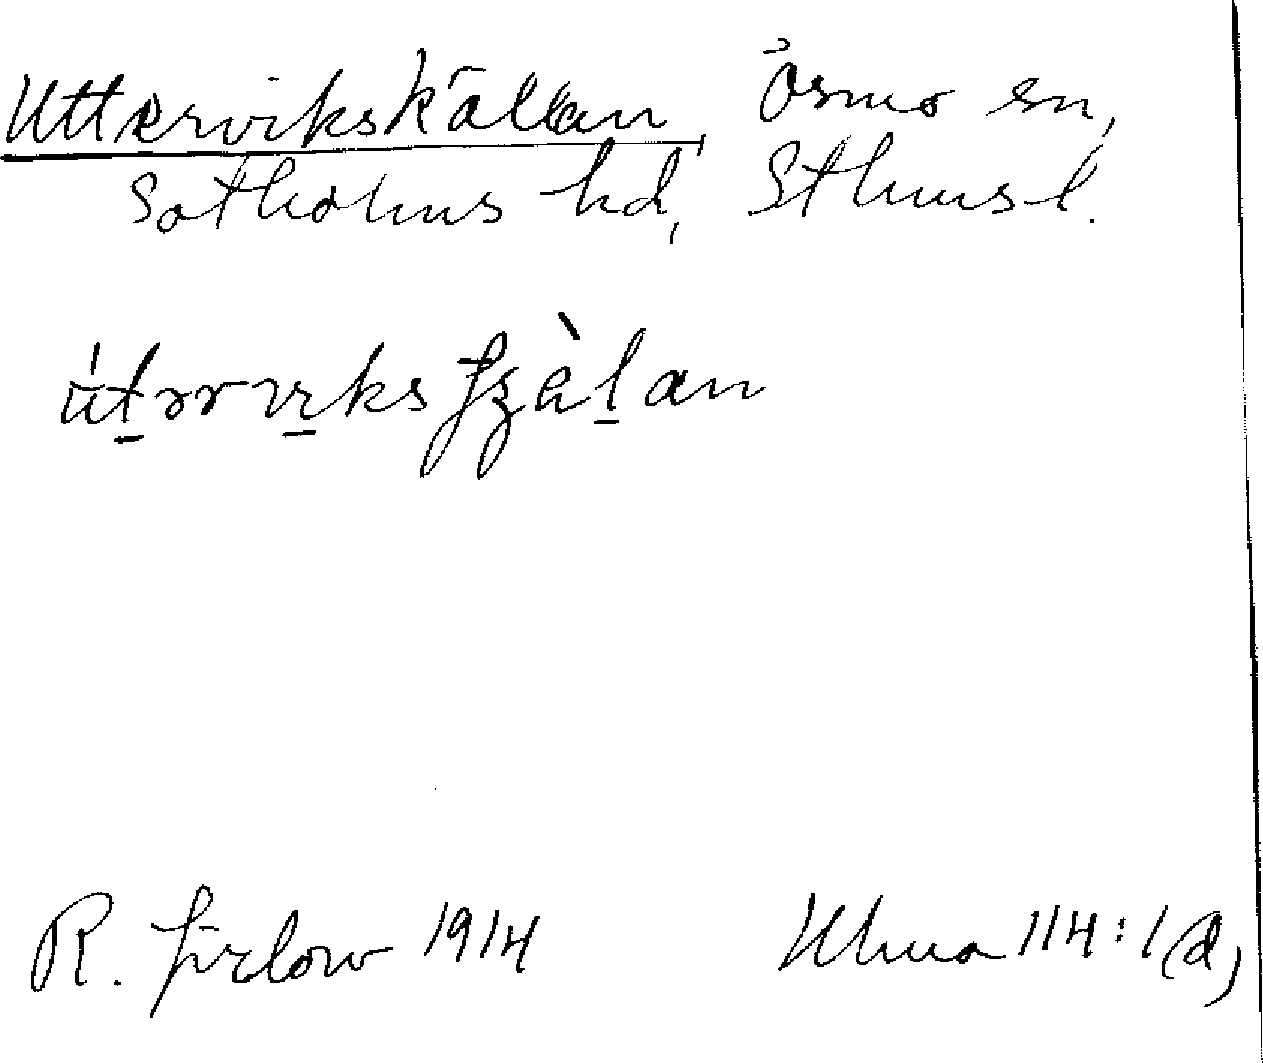 Uttervikskällan, Ösmo sn,
Sotholms hd, Sthms l.
R. Jirlow 1914 Ulma 114:1(d)